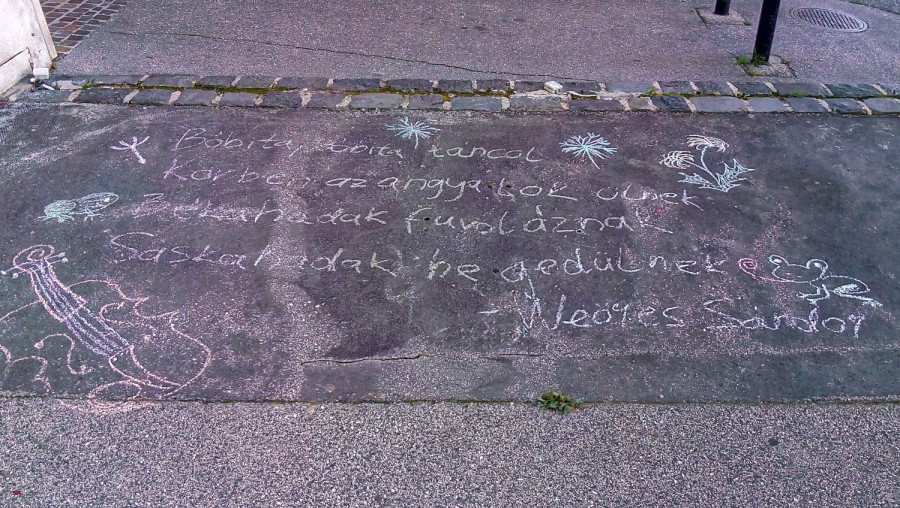 Bóbita, Bóbita táncol
Körben az angyalkok ülnek
Békahadak fuvoláznak
Saskahadak hegedülnek
- Weöres Sándor